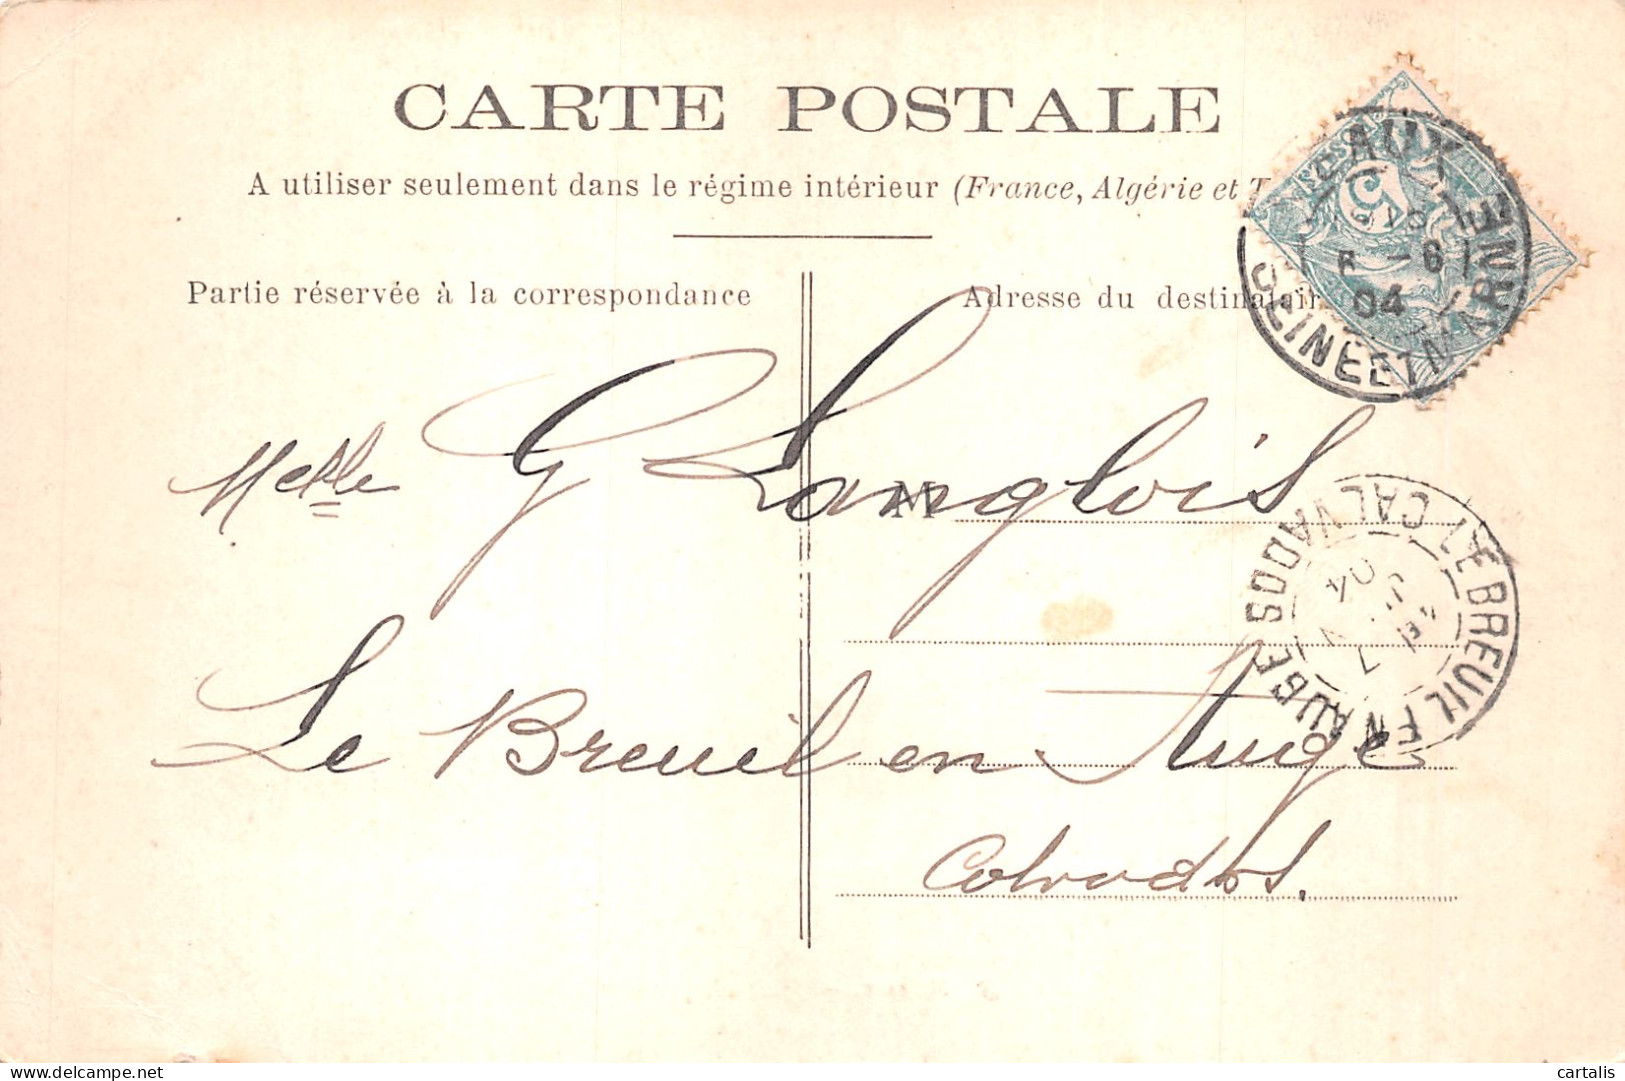 CARTE POSTALE
A utiliser seulement dans le régime intérieur (France, Algérie et T
Partie réservée à la correspondance
Adresse du destinatair
Melle G Langlois
M
Le Breuil en Auge
Calvados.
MEAUX
6
04
SEINE ET MARNE
5
LE BREUIL EN AUGE CALVADOS
7
04
delcampe.net
cartalis